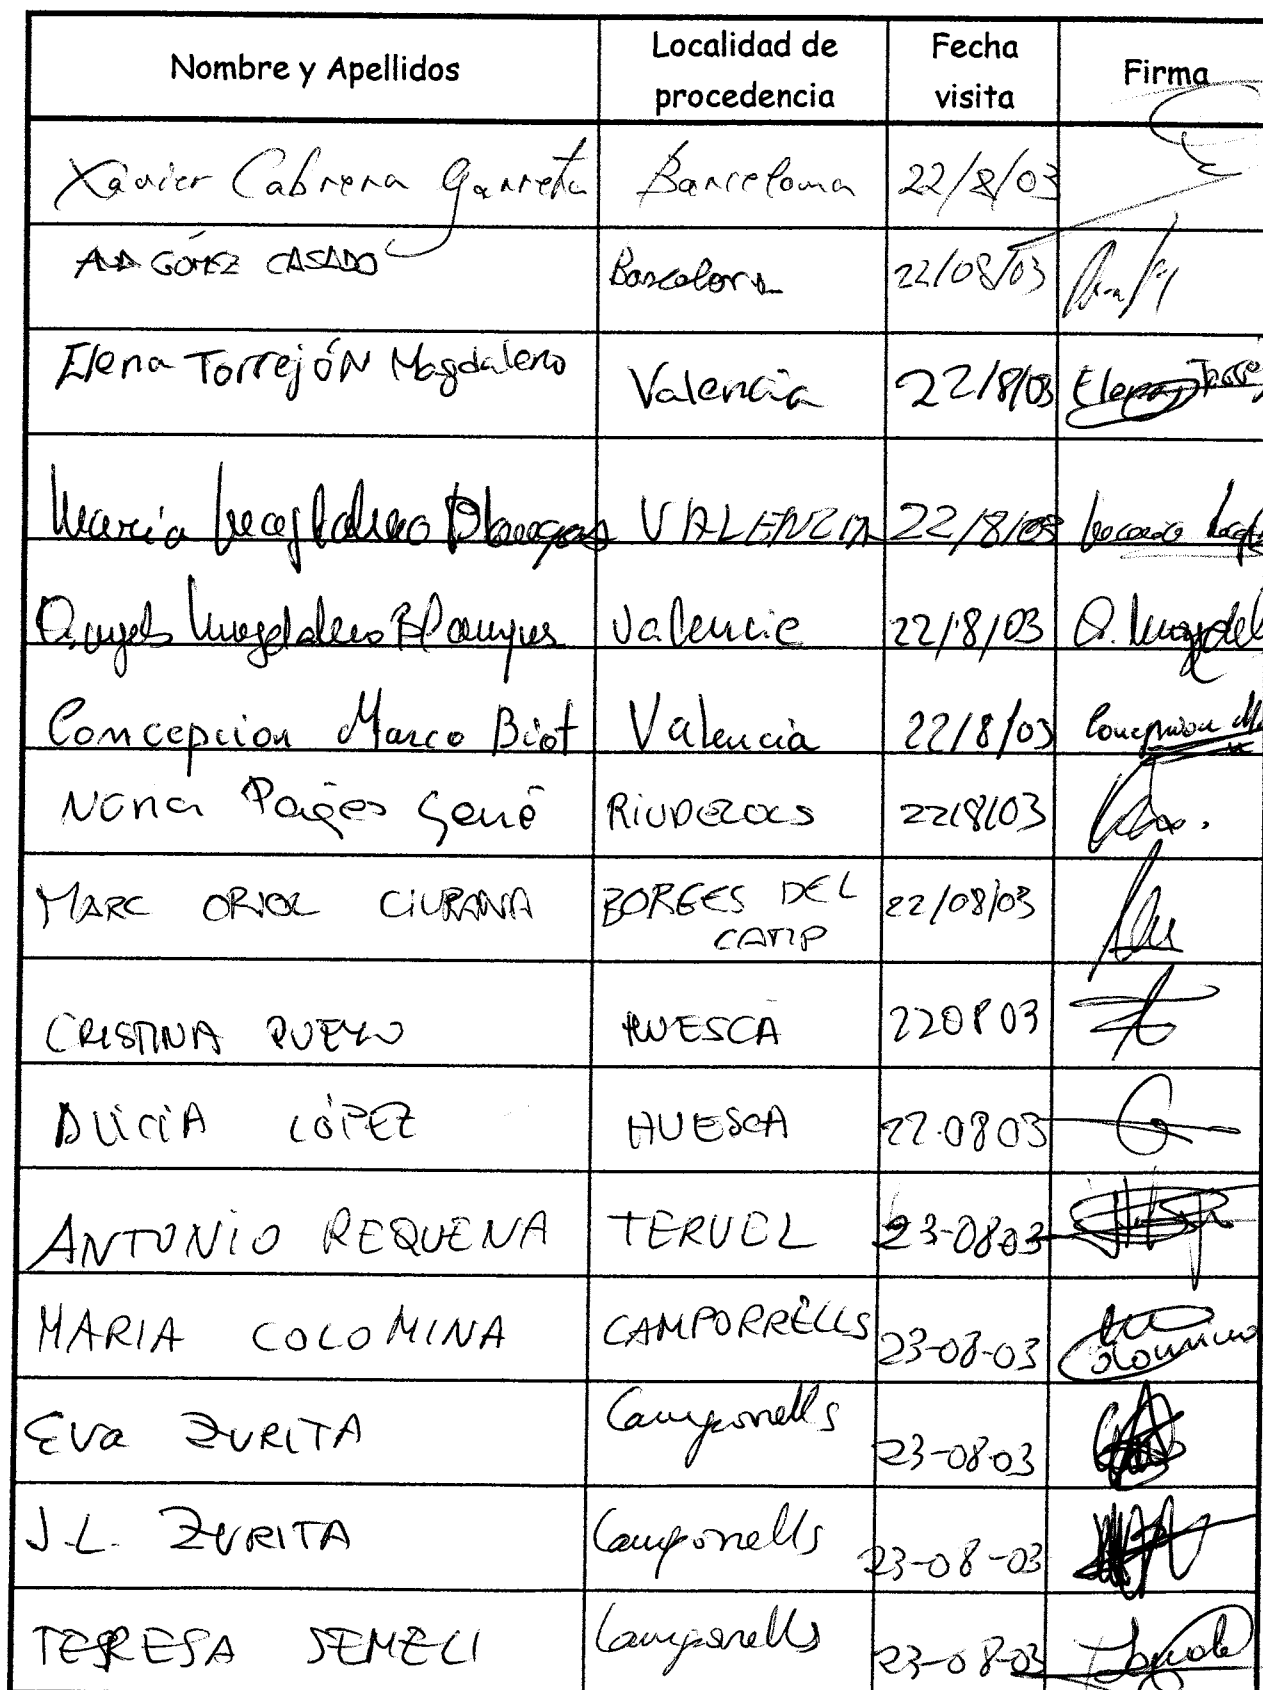 Nombre y Apellidos Localidad de procedencia Fecha visita Firma
Xavier Cabrera Garreta Barcelona 22/8/03
GÓMEZ CASADO Barcelona 22/08/03
Elena Torrejón Magdaleno Valencia 22/8/03 Elena Torre
María Magdaleno VALENCIA 22/8/03
Magdaleno Valencia 22/8/03
Concepcion Marco Biot Valencia 22/8/03 Concepcion
Pagès 22/8/03
MARC ORIOL CIURANA BORGES DEL CAMP 22/08/03
CRISTINA PUEYO HUESCA 220803
ALICIA LÓPEZ HUESCA 22.0803
ANTONIO REQUENA TERUEL 23-0803
MARIA COLOMINA CAMPORRÈLLS 23-08-03
EVa ZURITA Camporrells 23-08-03
J.L. ZURITA Camporrells 23-08-03
TERESA Camporrells 23-08-03